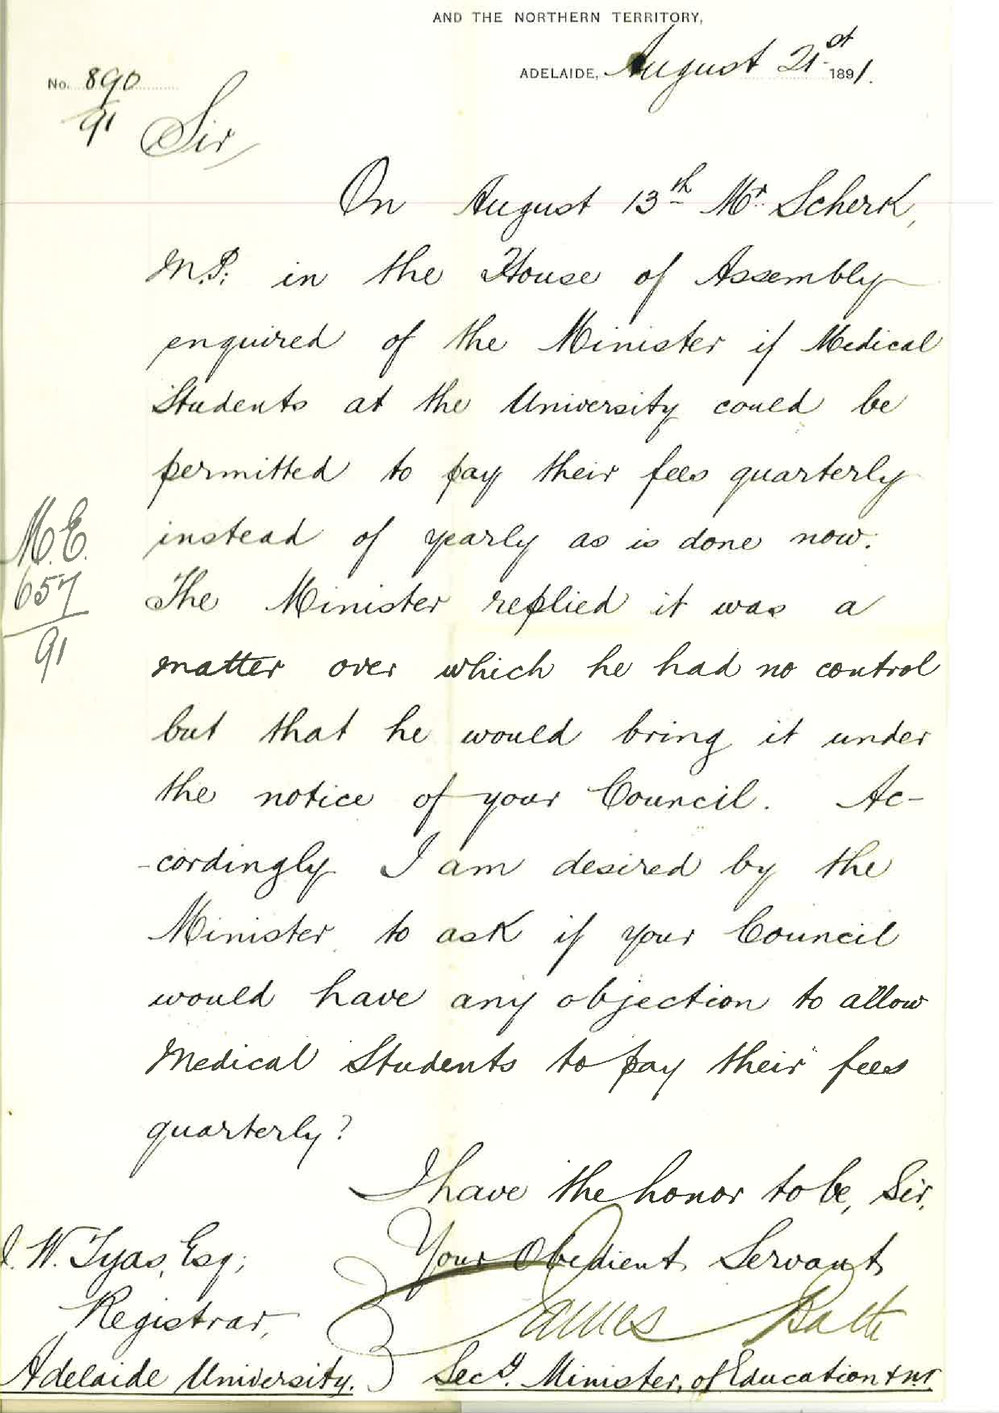 AND THE NORTHERN TERRITORY,
ADELAIDE, August 21st 1891.
No. 890
91
Sir,
On August 13th Mr. Scherk,
M.P. in the House of Assembly
enquired of the Minister if Medical
Students at the University could be
permitted to pay their fees quarterly
instead of yearly as is done now.
M.E.
657
91
The Minister replied it was a
matter over which he had no control
but that he would bring it under
the notice of your Council. Ac-
-cordingly I am desired by the
Minister to ask if your Council
would have any objection to allow
Medical Students to pay their fees
quarterly?
I have the honor to be, Sir,
Your Obedient Servant
James Bath
Secy. Minister, of Education &
J. W. Tyas, Esq;
Registrar,
Adelaide University.